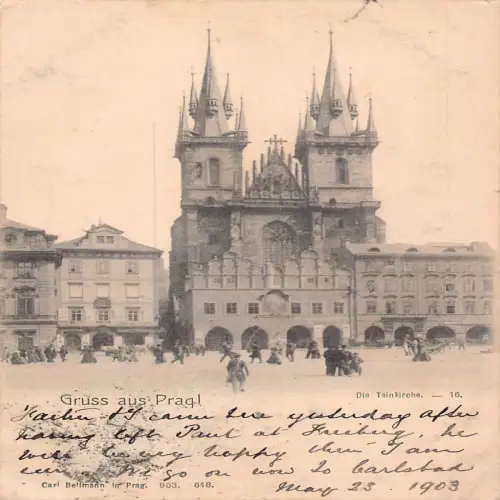 Gruss aus Prag!
Die Tainkirche. — 16.
I came here yesterday after
having left Paul at Freiberg, he
were very happy there I am
sure. I go on now to Carlsbad
May 23. 1903
Carl Bellmann in Prag. 903. 648.